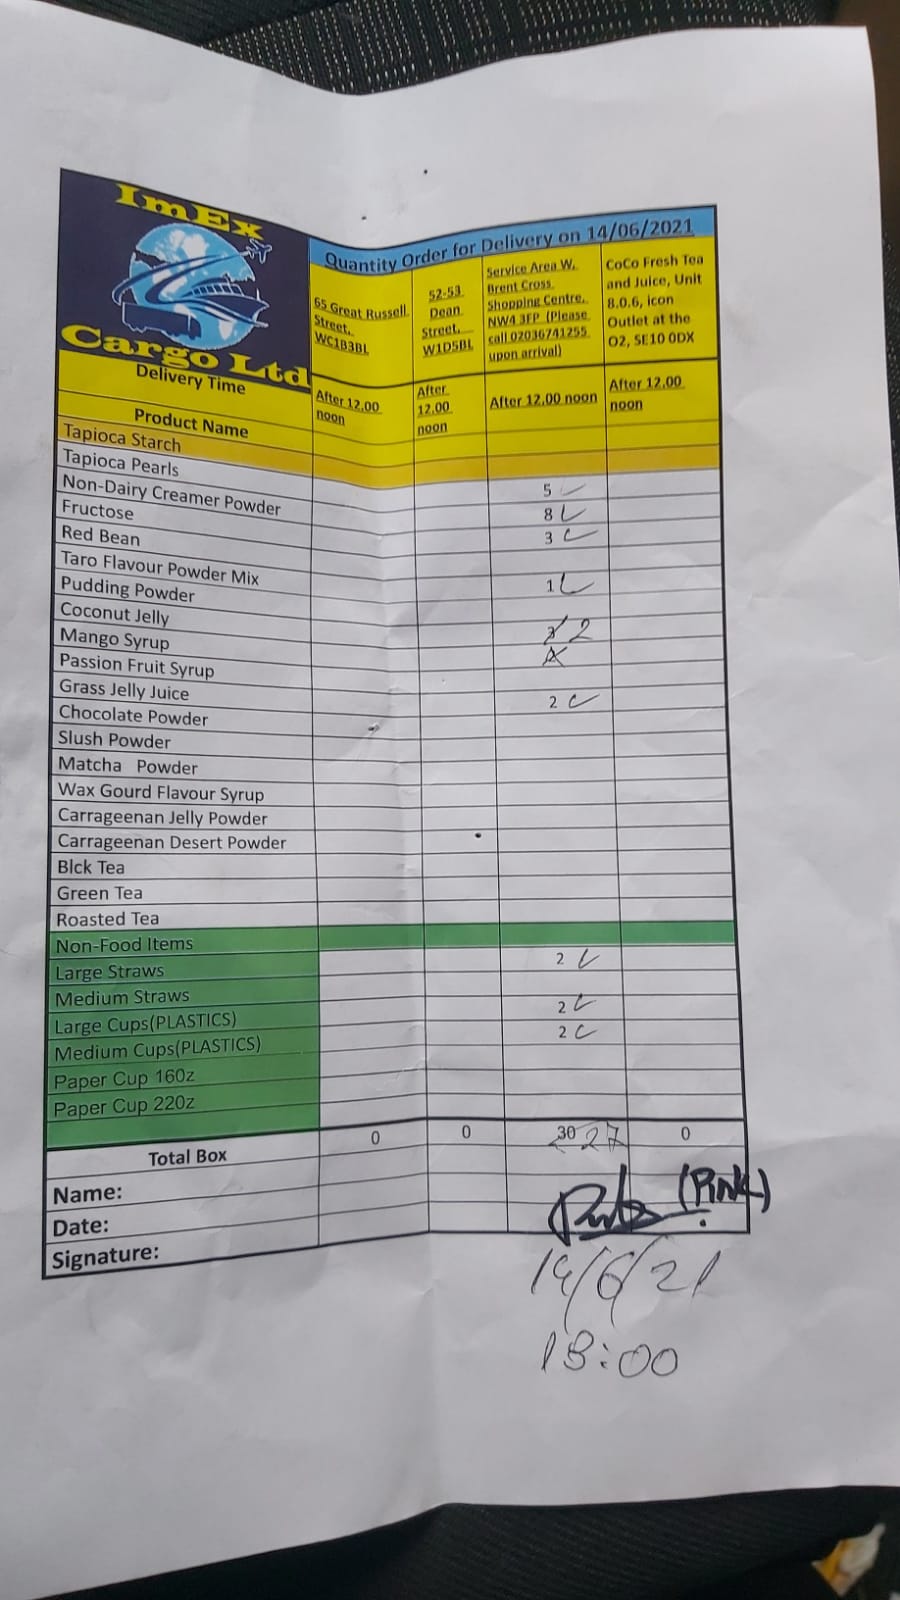 ImEx
Cargo Ltd
Quantity Order for Delivery on 14/06/2021
65 Great Russell
Street,
WC1B3BL
52-53
Dean
Street,
W1D5BL
Service Area W,
Brent Cross
Shopping Centre,
NW4 3FP (Please
call 02036741255
upon arrival)
CoCo Fresh Tea
and Juice, Unit
8.0.6, icon
Outlet at the
O2, SE10 0DX
Delivery Time
After 12,00
noon
After
12,00
noon
After 12,00 noon
After 12,00
noon
Product Name
Tapioca Starch
Tapioca Pearls 5
Non-Dairy Creamer Powder 8
Fructose 3
Red Bean
Taro Flavour Powder Mix 1
Pudding Powder
Coconut Jelly 2
Mango Syrup
Passion Fruit Syrup
Grass Jelly Juice 2
Chocolate Powder
Slush Powder
Matcha Powder
Wax Gourd Flavour Syrup
Carrageenan Jelly Powder
Carrageenan Desert Powder
Blck Tea
Green Tea
Roasted Tea
Non-Food Items
Large Straws 2
Medium Straws
Large Cups(PLASTICS) 2
Medium Cups(PLASTICS) 2
Paper Cup 160z
Paper Cup 220z
Total Box 0 0 30 27 0
Name: (Pink)
Date:
Signature:
14/6/21
13:00